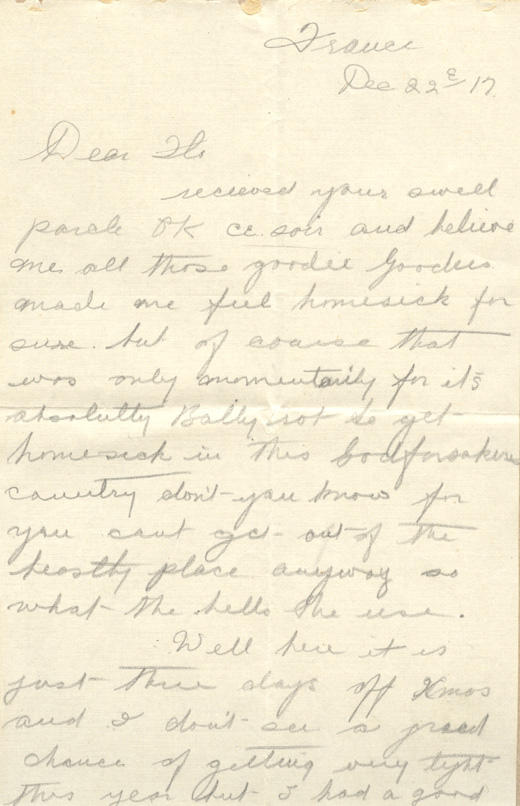 France
Dec 22ᵉ 17.
Dear Flo
recieved your swell
parcle OK ce. soir and believe
me all those goodie Goodies
made me feel homesick for
sure. but of coarse that
was only momentarily for it's
absolutly Bally rot to get
homesick in this Godforsaken
country don't you know for
you cant get out of the
beastly place anyway so
what the hells the use.
Well here it is
just three days off Xmas
and I don't see a great
chance of getting very tight
this year but I had a good